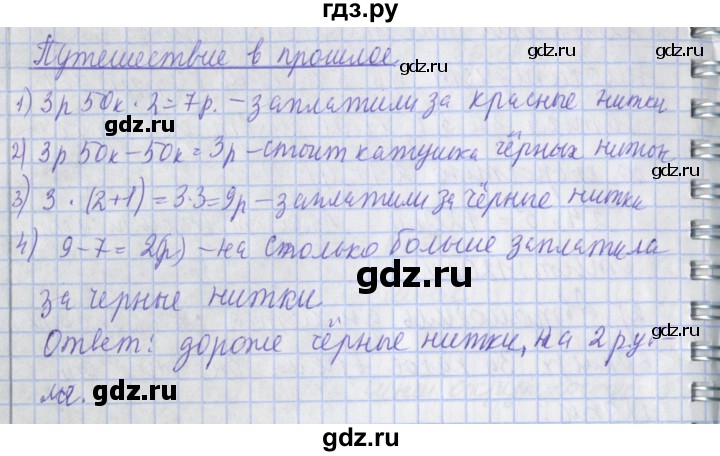 гдз.ру
Путешествие в прошлое
1) 3р 50к · 2 = 7р. - заплатили за красные нитки
2) 3р 50к - 50к = 3р - стоит катушка чёрных ниток
3) 3 · (2+1) = 3·3 = 9р - заплатили за чёрные нитки
4) 9 - 7 = 2(р) - на столько больше заплатила
за черные нитки
Ответ: дороже чёрные нитки, на 2 руб-
ля.
gdz.ru
gdz.ru
gdz.ru
gdz.ru
gdz.ru
gdz.ru
gdz.ru
gdz.ru
gdz.ru
gdz.ru
gdz.ru